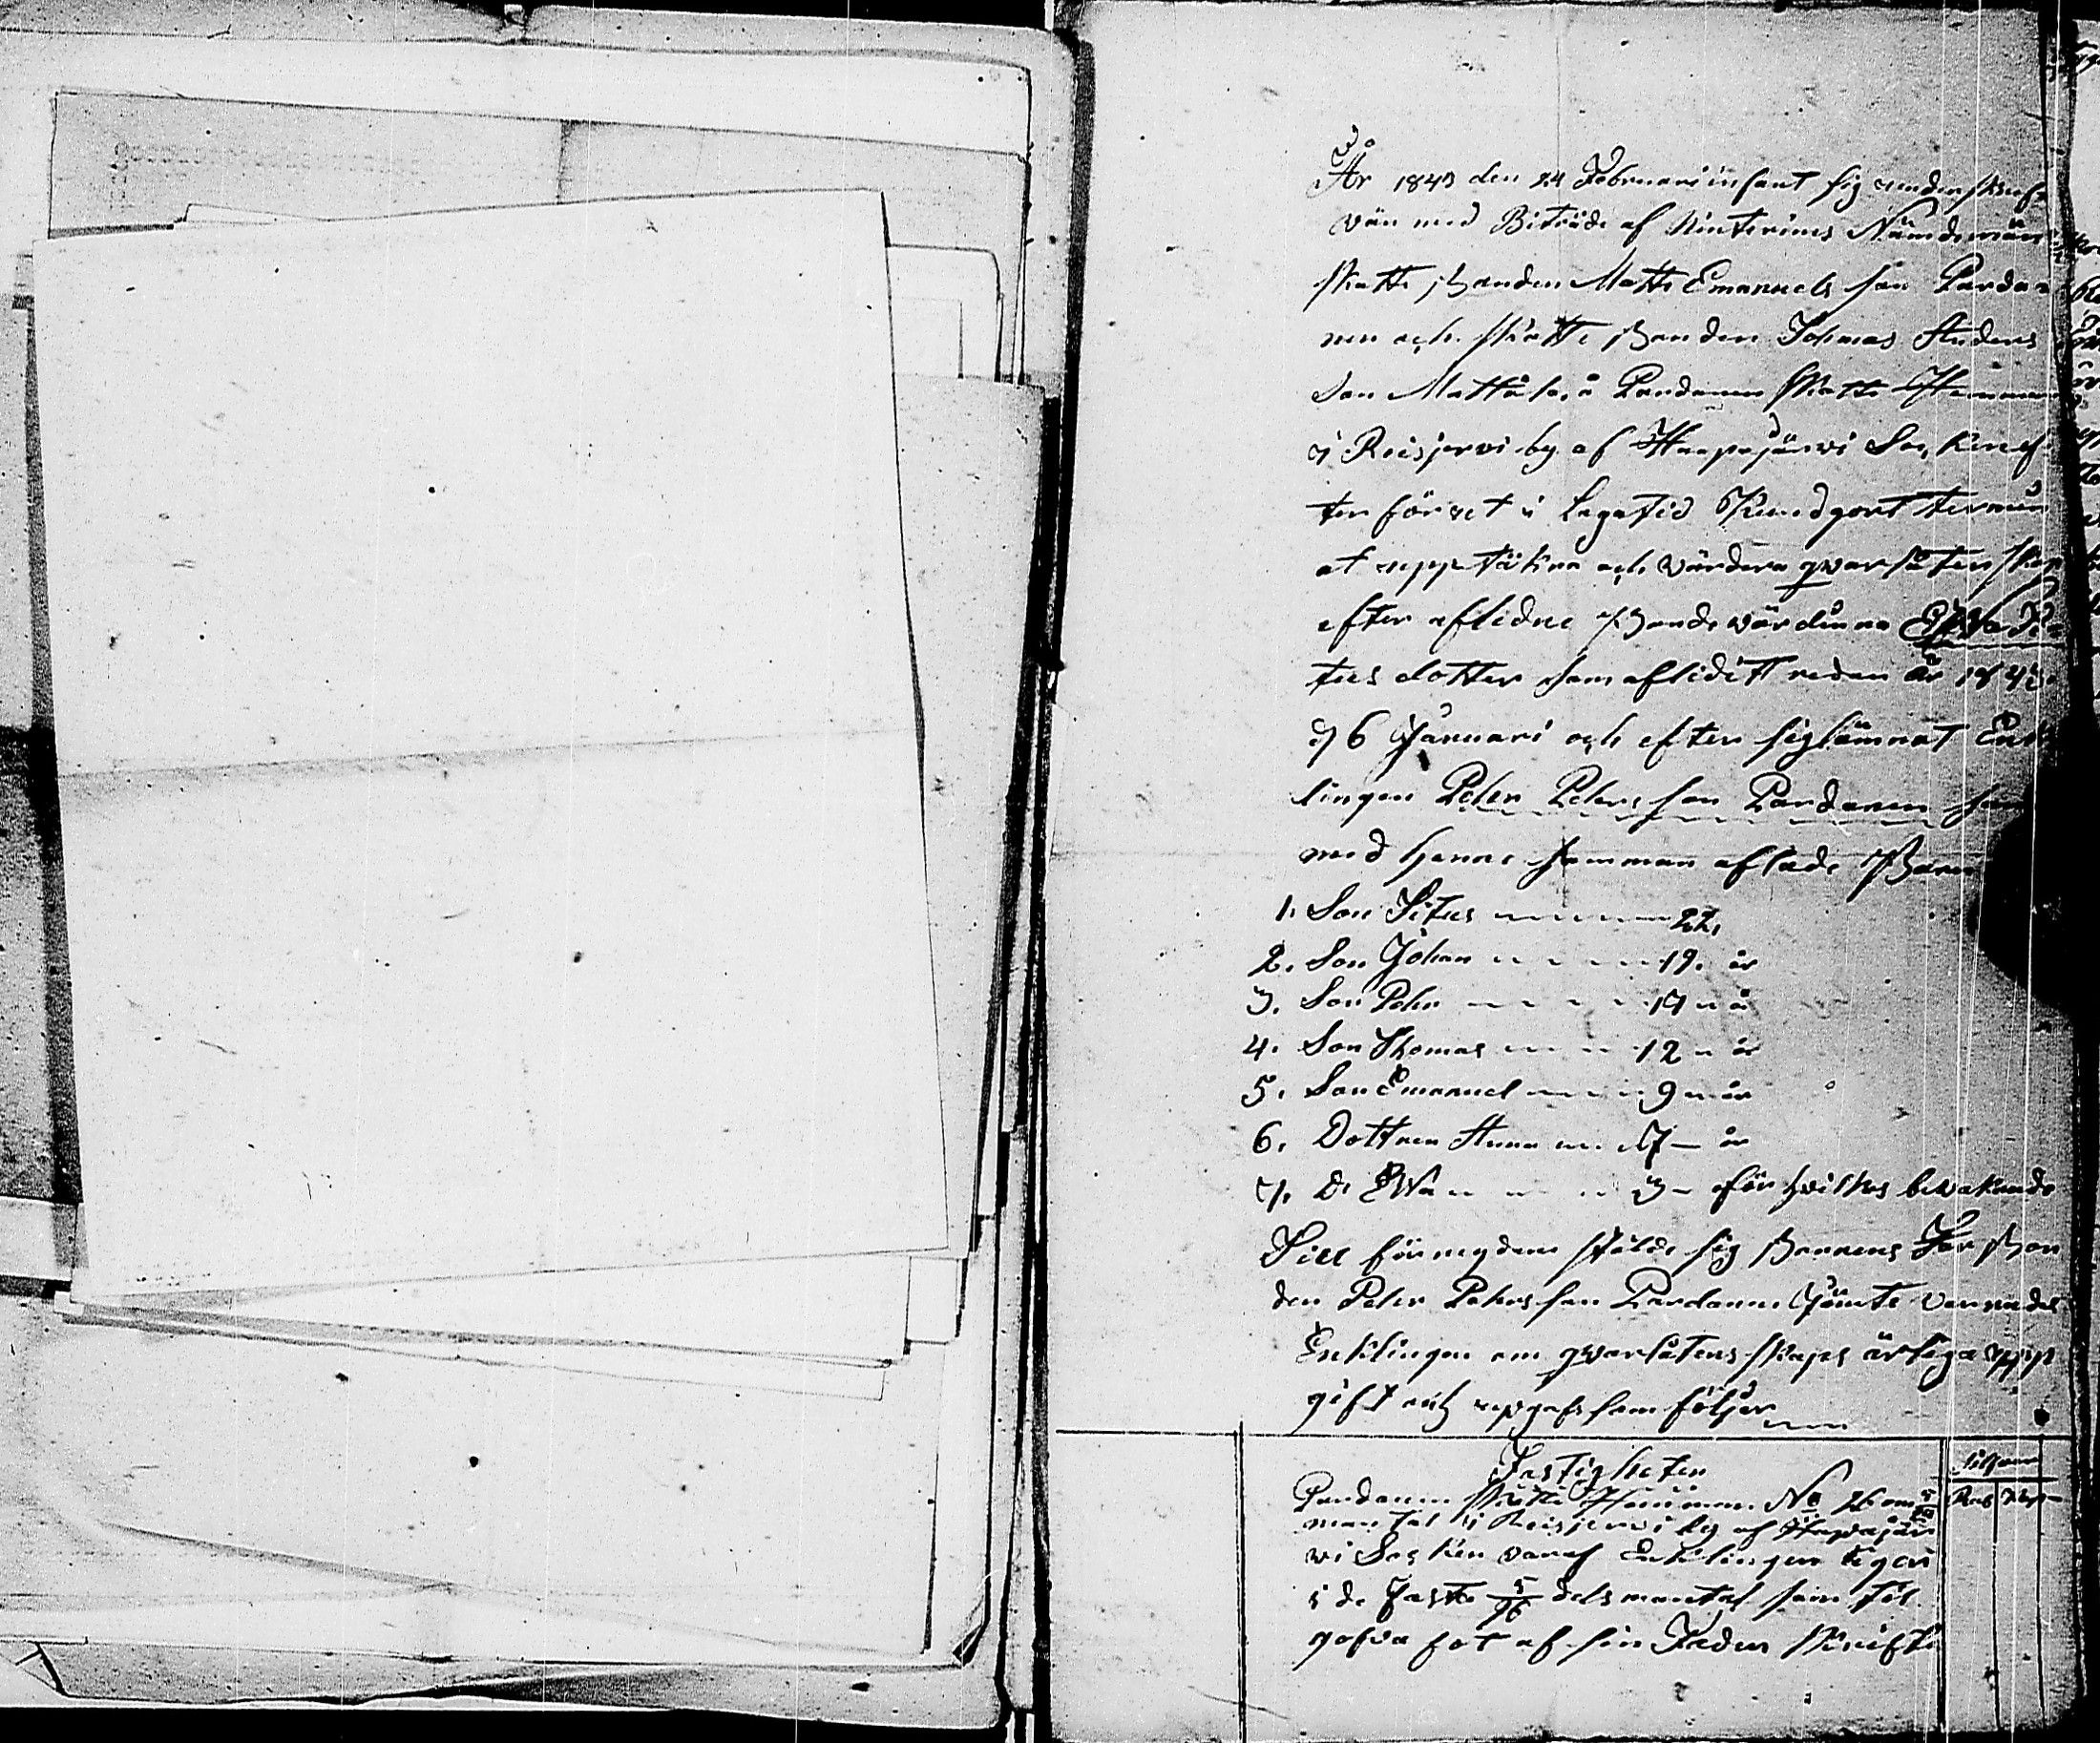 År 1843 den 24 Februari infant sig underskrif
wän med Biträde af Ninterimes Nämdemän
skatte Bonden Matts Emanuels son Parda
nen och skatte Bonden Johmas Anders
Son Mattila, å Pardanen Skatte Hemman
i Reisjervi by af Haapajärvi Socken ef
ter föruet i Lagatid Kundgort termin
at upptäkna och wärdera qwarlåtenskap
efter aflidne Bondewärdinna Ewa Ti
tus dotter som aflidit redan År 184
d 6 Januari och efter sig lämnat Enk
lingen Peter Peters son Pardanen sam
med henne samman aflade Barn
1. Son Titus 22,
2. Son Johan 19. år
3. Son Peter 17 år
4. Son Thomas 12 år
5. Son Emanuel 9 år
6. Dottren Anna 7 år
7. D: Ewa 3 för hvilkes bewakande
Till förmyndare stälde sig Barnens Far Bon
den Peter Peters son Pardanen Jämte varnades
Enklingen om qwarlåtens skaps ärliga upp
gift och uppgafs som följer
Fastigheten
Silfver
Pardanen Skatte Hemman No 26 om
Rub Kop
mantal i Reisjerwi by af Haapajär
wi Socken varaf Enklingen äger
i de Faste 5/96 dels mantal som til
gofva fot af sin Fader skrift